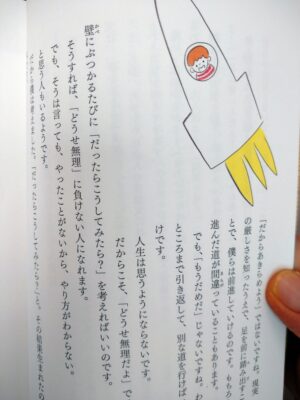 「だからあきらめよう」ではないですね。現実
の厳しさを知ったうえで、足を前に踏み出すこ
とで、僕らは前進していけるのです。もちろ
進んだ道が間違っていることもあります。
でも、「もうだめだ」じゃないですね。わ
ところまで引き返して、別な道を行けば
けです。
人生は思うようにならないです。
だからこそ、「どうせ無理だよ」で
壁にぶつかるたびに「だったらこうしてみたら？」を考えればいいのです。
かべ
そうすれば、「どうせ無理」に負けない人になれます。
でも、そうは言っても、やったことがないから、やり方がわからない。
と思う人もいるようです。
だから僕は考えました。「だったらこうしてみたら？」と。その結果生まれたの